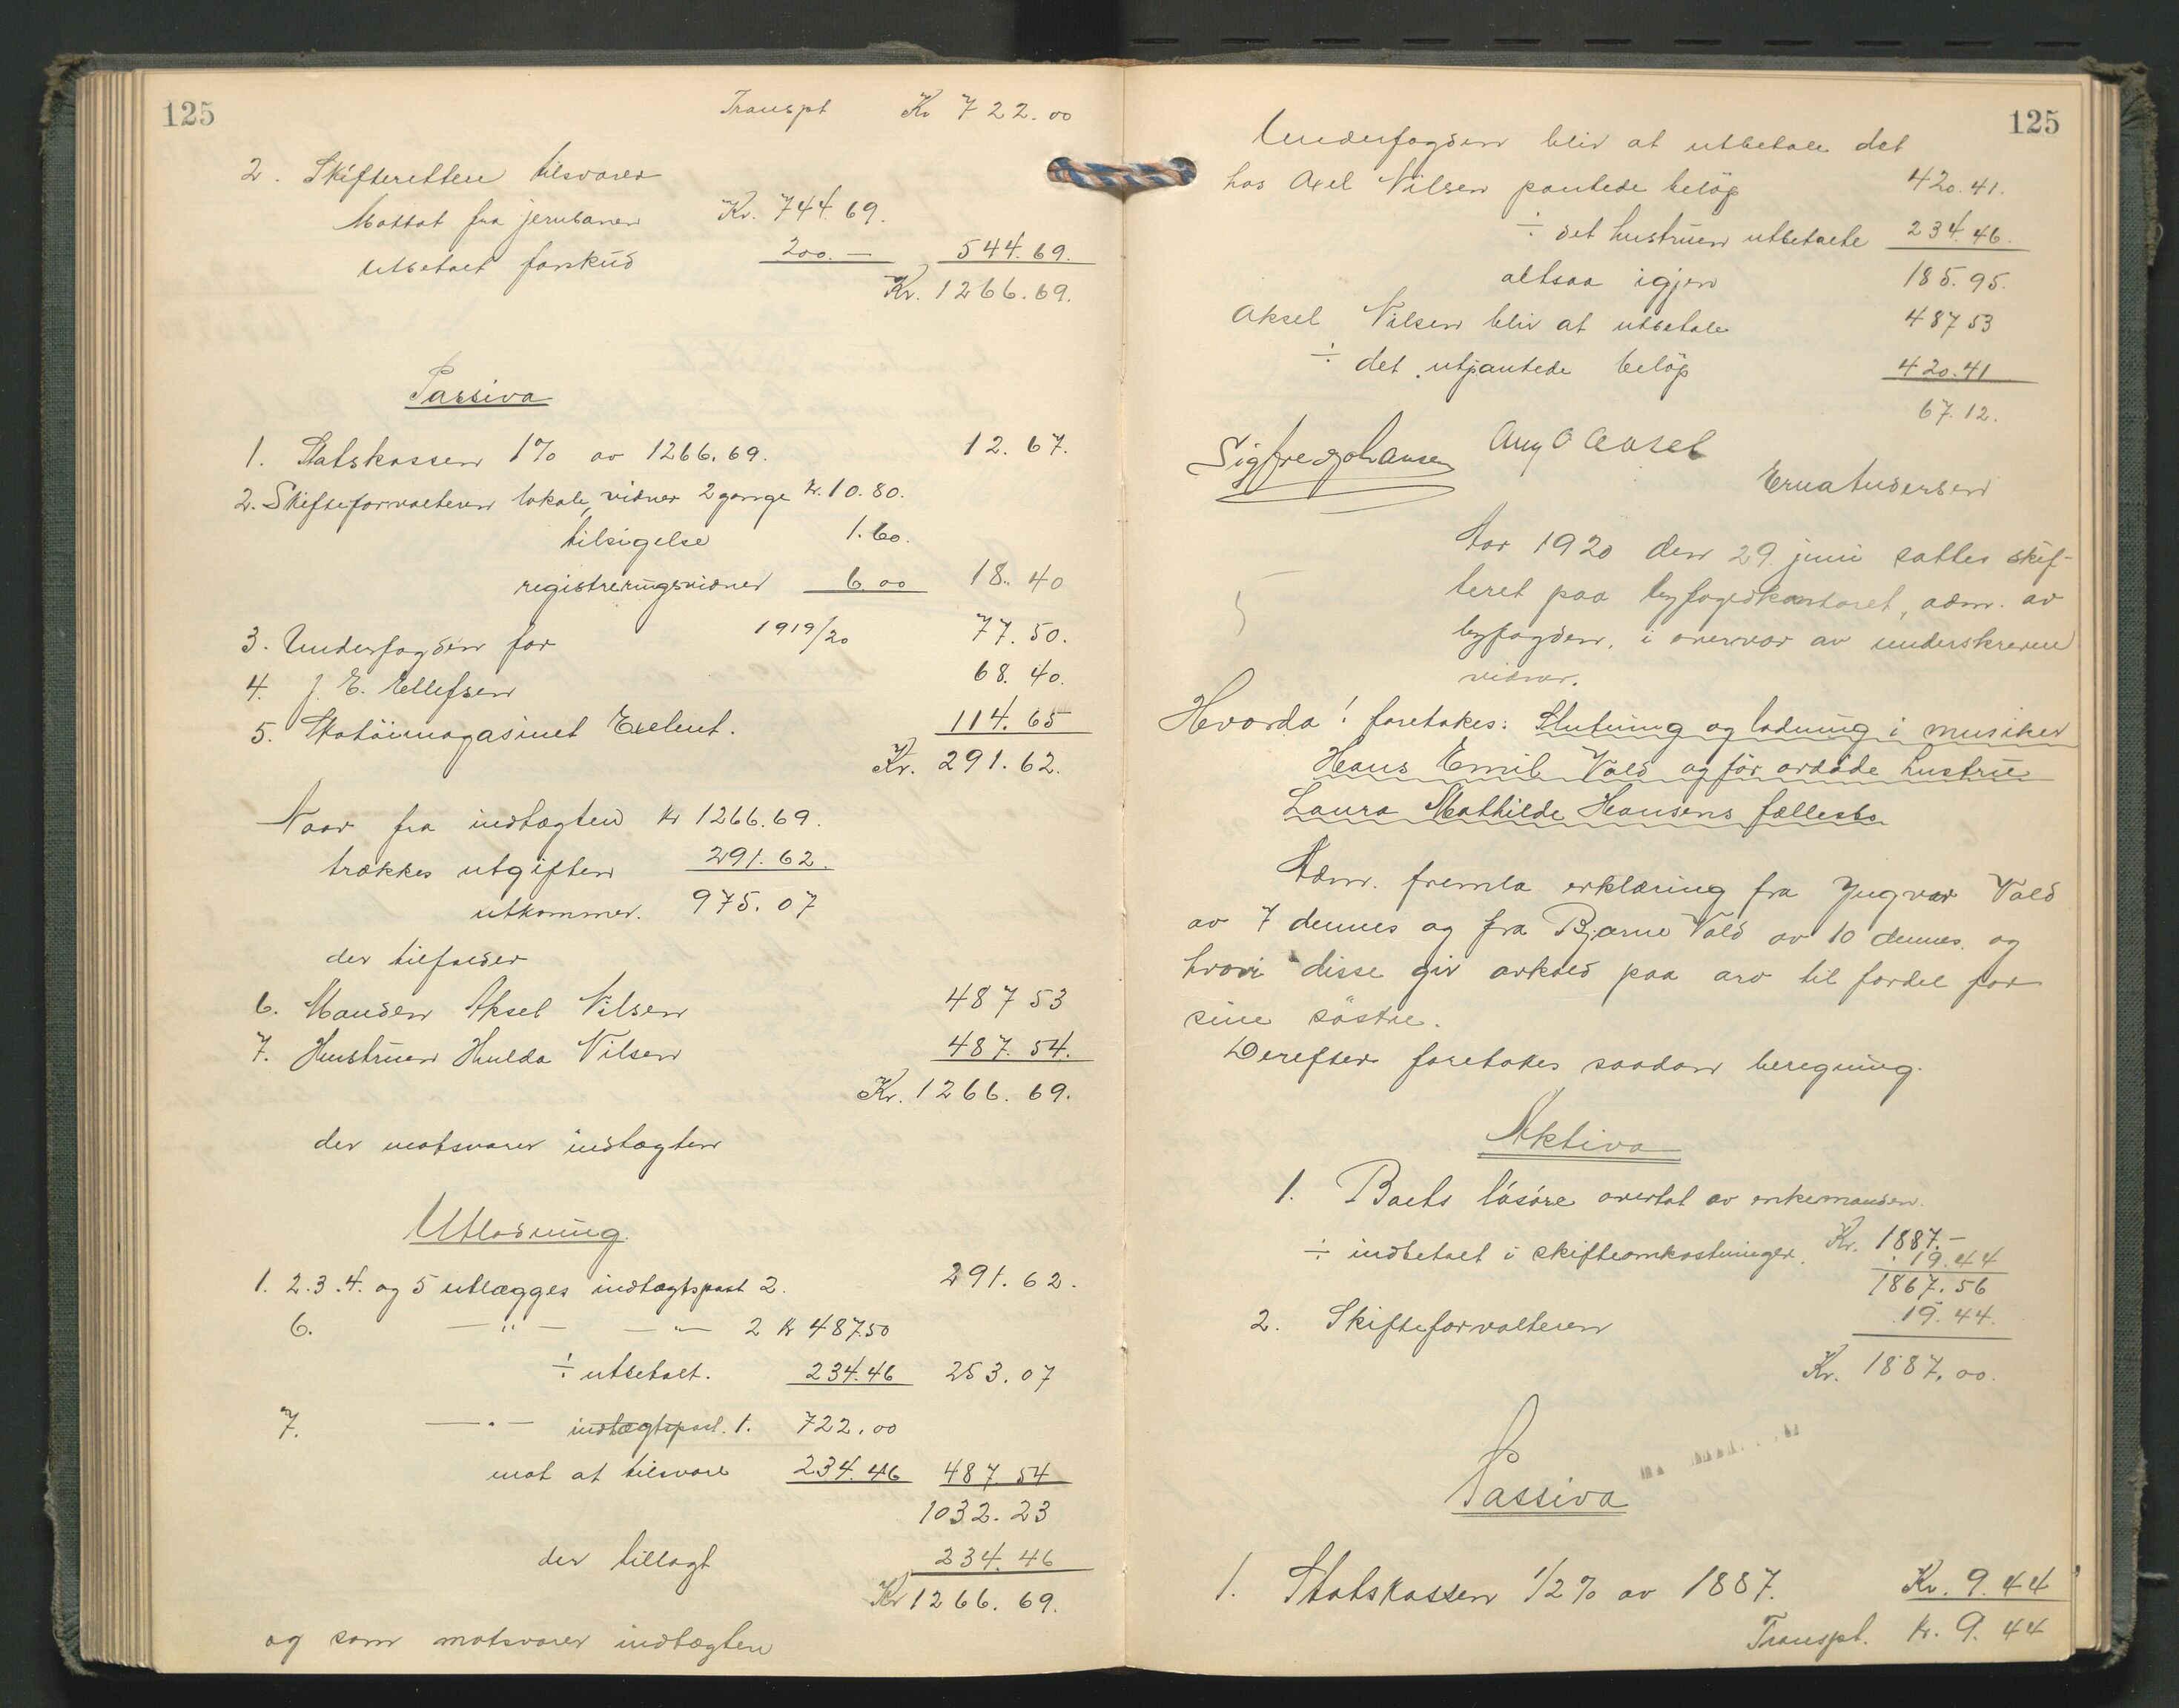 125
Transpt Kr 722.00
2. Skifteretten tilsvarer
Mottat fra jernbanen Kr. 744.69.
utbetalt forskud 200.— 544.69.
Kr. 1266.69.
Passiva
1. Statskassen 1% av 1266.69. 12.67.
2. Skifteforvalteren lokale, vidner 2 gange kr. 10.80.
tilsigelse 1.60.
registreringsvidner 6.00 18.40
3. Underfogden for 1919/20 77.50.
4. J. E. Ellefsen 68.40.
5. Skotöimagasinet Exelent. 114.65
Kr. 291.62.
Naar fra indtægten kr 1266.69.
trækkes utgiften 291.62.
utkommer. 975.07
der tilfalder
6. Manden Aksel Nilsen 487 53
7. Hustruen Hulda Nilsen 487.54.
Kr. 1266.69.
der motsvarer indtægten
Utlodning.
1. 2. 3. 4. og 5 utlægges indtægtspost 2. 291.62.
6. —„— —„— 2 kr 487.50
÷ utbetalt. 234.46 253.07
7. —„— indtægtspost. 1. 722.00
mot at tilsvare 234.46 487 54
1032.23
der tillagt 234.46
Kr 1266.69.
og som motsvarer indtægten
125
Underfogden blir at utbetale det
hos Axel Nilsen pantede belöp 420.41.
÷ det hustruen utbetalte 234.46.
altsaa igjen 185.95.
Aksel Nilsen blir at utbetale 487 53
÷ det utpantede belöp 420.41
67.12.
Sigfred Johansen Aug O Aasel
Erna Andersen
Aar 1920 den 29. juni sattes skif-
teret paa byfogedkontoret, adm. av
byfogden, i overvær av underskrevne
vidner.
Hvorda! foretokes: Slutning og lodning i musiker
Hans Emil Vold og før avdøde hustru
Laura Mathilde Hansens fællesbo
Adm. fremla erklæring fra Yngvar Vold
av 7 dennes og fra Bjarne Vold av 10 dennes, og
hvori disse gir avkald paa arv til fordel for
sine söstre.
Derefter foretokes saadan beregning.
Aktiva
1. Boets lösöre overtat av enkemanden.
Kr. 1887.—
÷ indbetalt i skifteomkostninger. 19.44
1867.56
2. Skifteforvalteren 19.44.
Kr. 1887.00.
Passiva
1. Statskassen 1/2% av 1887. Kr. 9.44
Transpt. kr. 9.44